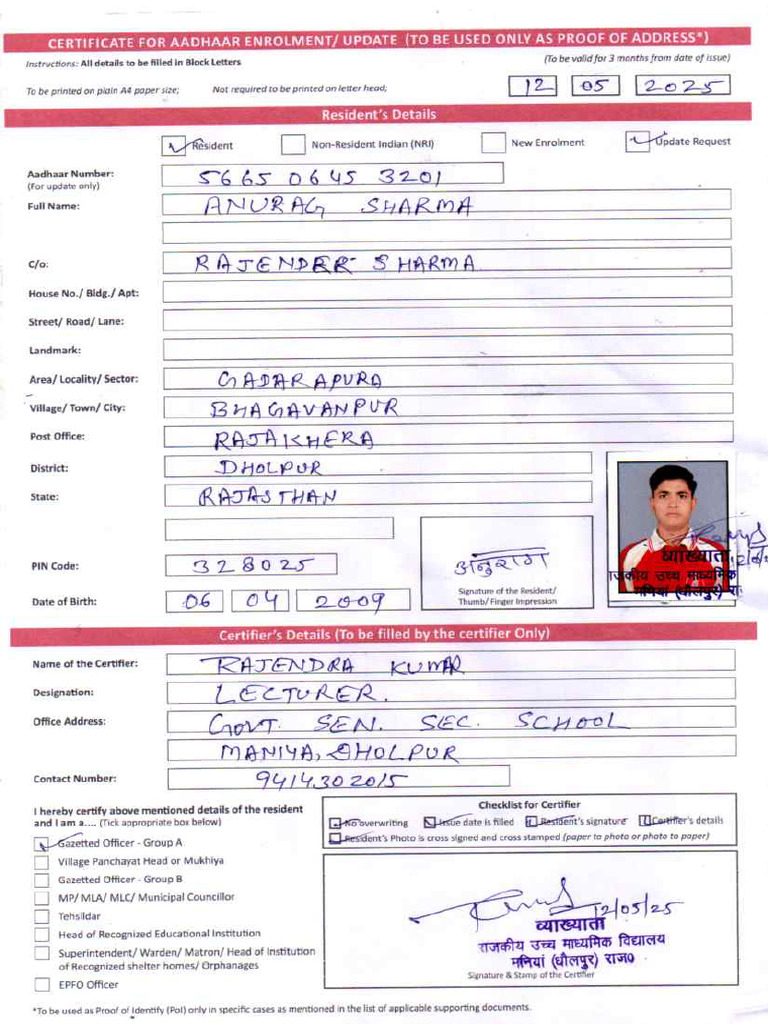 CERTIFICATE FOR AADHAAR ENROLMENT/ UPDATE (TO BE USED ONLY AS PROOF OF ADDRESS*)
Instructions: All details to be filled in Block Letters
(To be valid for 3 months from date of issue)
To be printed on plain A4 paper size; Not required to be printed on letter head;
12 05 2025
Resident's Details
Resident Non-Resident Indian (NRI) New Enrolment Update Request
Aadhaar Number: 5665 0645 3201
(For update only)
Full Name: ANURAG SHARMA
C/o: RAJENDER SHARMA
House No./ Bldg./ Apt:
Street/ Road/ Lane:
Landmark:
Area/ Locality/ Sector: GADARAPURA
Village/ Town/ City: BHAGAVANPUR
Post Office: RAJAKHERA
District: DHOLPUR
State: RAJASTHAN
PIN Code: 328025
अनुराग
Signature of the Resident/
Thumb/ Finger Impression
व्याख्याता
राजकीय उच्च माध्यमिक
मनियां (धौलपुर)
Date of Birth: 06 04 2009
Certifier's Details (To be filled by the certifier Only)
Name of the Certifier: RAJENDRA KUMAR
Designation: LECTURER.
Office Address: GOVT. SEN. SEC. SCHOOL
MANIYA, DHOLPUR
Contact Number: 9414302015
I hereby certify above mentioned details of the resident
and I am a.... (Tick appropriate box below)
Checklist for Certifier
No overwriting Issue date is filled Resident's signature Certifier's details
Resident's Photo is cross signed and cross stamped (paper to photo or photo to paper)
Gazetted Officer - Group A
Village Panchayat Head or Mukhiya
Gazetted Officer - Group B
MP/ MLA/ MLC/ Municipal Councillor
Tehsildar
Head of Recognized Educational Institution
Superintendent/ Warden/ Matron/ Head of Institution
of Recognized shelter homes/ Orphanages
EPFO Officer
12/05/25
व्याख्याता
राजकीय उच्च माध्यमिक विद्यालय
मनियां (धौलपुर) राज०
Signature & Stamp of the Certifier
*To be used as Proof of Identify (PoI) only in specific cases as mentioned in the list of applicable supporting documents.